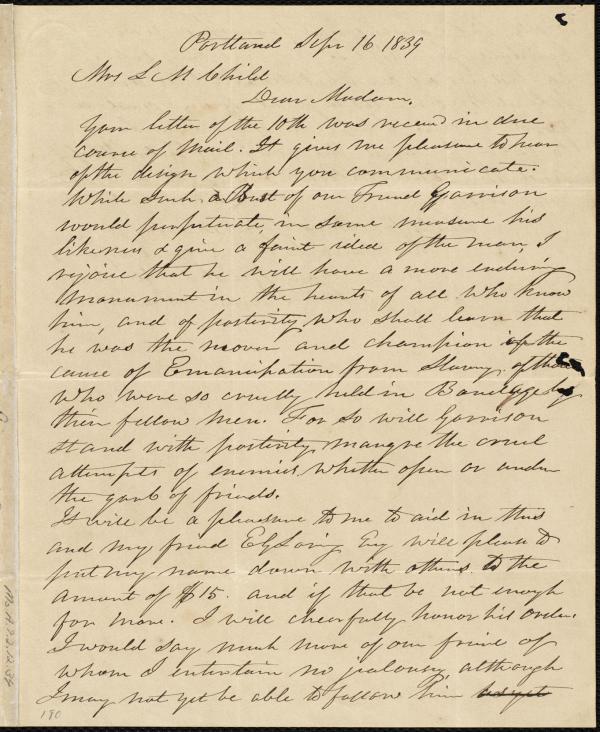 Portland Sepr 16 1839
Mrs L M Child
Dear Madam,
Your letter of the 10th was received in due
course of Mail. It gives me pleasure to hear
of the design which you communicate.
While such a Bust of our Friend Garrison
would perpetuate, in some measure his
likeness & give a faint idea of the man, I
rejoice that he will have a more enduring
Monument in the hearts of all who know
him, and of posterity, who shall learn that
he was the mover and champion of the
cause of Emancipation from Slavery, of those
who were so cruelly held in Bondage by
their fellow men. For so will Garrison
stand with posterity, maugre the cruel
attempts of enemies, whether open or under
the garb of friends.
It will be a pleasure to me to aid in this
and my friend E G Loring Esq will please to
put my name down with others to the
amount of $15. and if that be not enough
for more. I will cheerfully honor his order.
I would say much more of our friend of
whom I entertain no jealousy, although
I may not yet be able to follow him as yet
190
Ms.A.9.2.12.84